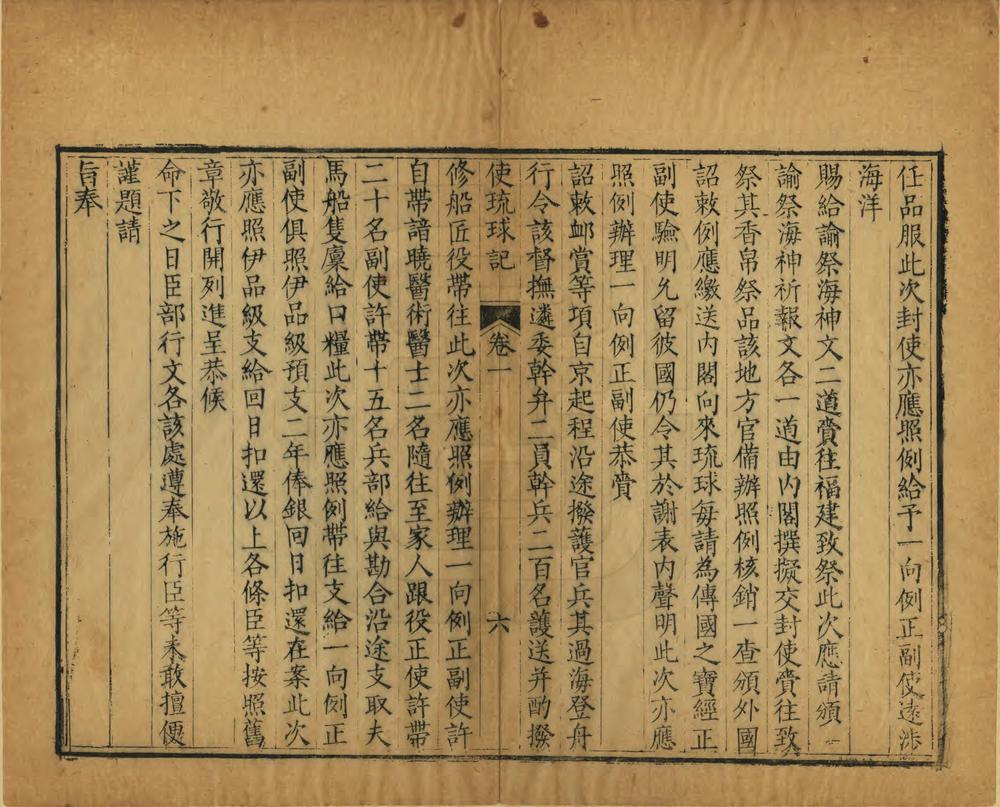 任品服此次封使亦應照例給予一向例正副使遠涉
海洋
賜給諭祭海神文二道賫往福建致祭此次應請頒
諭祭海神祈報文各一道由內閣撰擬交封使賫往致
祭其香帛祭品該地方官備辦照例核銷一查頒外國
詔敕例應繳送內閣向來琉球每請為傳國之寶經正
副使驗明允留彼國仍令其於謝表內聲明此次亦應
照例辦理一向例正副使恭賫
詔敕䘏賞等項自京起程沿途撥護官兵其過海登舟
行令該督撫遴委幹弁二員幹兵二百名護送并酌撥
使琉球記 卷一 六
修船匠役帶往此次亦應照例辦理一向例正副使許
自帶諳曉醫術醫士二名隨往至家人跟役正使許帶
二十名副使許帶十五名兵部給與勘合沿途支取夫
馬船隻廩給口糧此次亦應照例帶往支給一向例正
副使俱照伊品級預支二年俸銀回日扣還在案此次
亦應照伊品級支給回日扣還以上各條臣等按照舊
章敬行開列進呈恭候
命下之日臣部行文各該處遵奉施行臣等未敢擅便
謹題請
旨奉